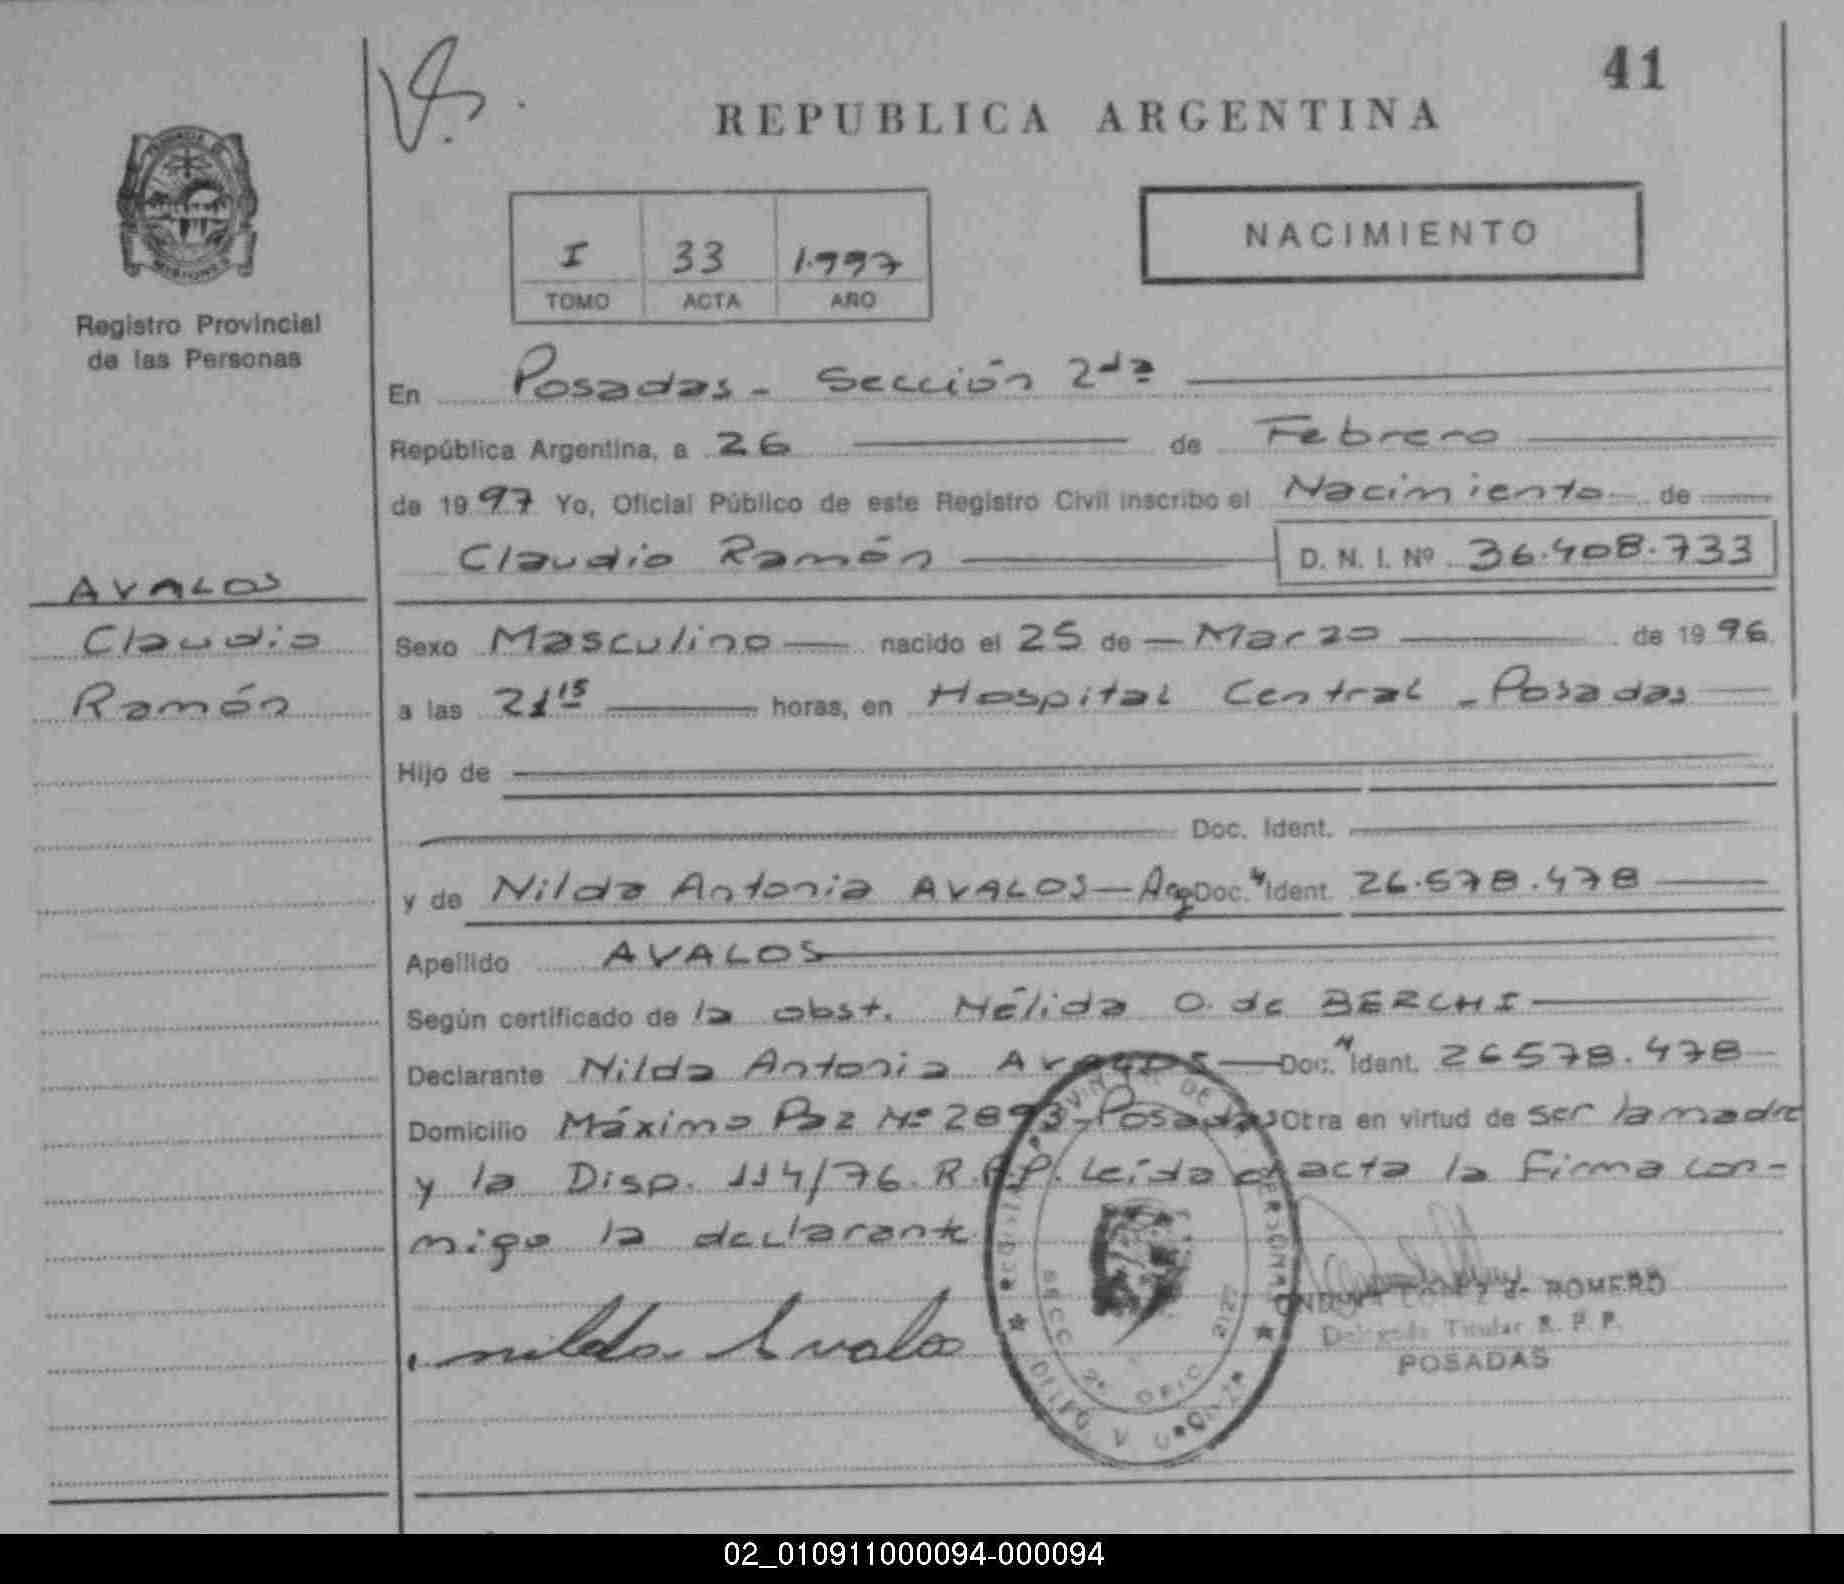 41
REPUBLICA ARGENTINA
NACIMIENTO
I 33 1.997
TOMO ACTA AÑO
Registro Provincial
de las Personas
En Posadas - Sección 2da
República Argentina, a 26 de Febrero
de 1997 Yo, Oficial Público de este Registro Civil inscribo el Nacimiento de
Claudio Ramón D. N. I. Nº 36.408.733
AVALOS
Claudio
Ramón
Sexo Masculino nacido el 25 de Marzo de 1996
a las 21 15 horas, en Hospital Central - Posadas
Hijo de
Doc. Ident.
y de Nilda Antonia AVALOS - Arg Doc. Ident. 26.578.478
Apellido AVALOS
Según certificado de la obst. Nélida O. de BERCHI
Declarante Nilda Antonia AVALOS Doc. Ident. 26578.478
Domicilio Máximo Paz Nº 2893 - Posadas Otra en virtud de ser la madre
y la Disp. 114/76 R.P.P. Leída el acta la firma con-
migo la declarante
nilda Avalos
DE ROMERO
Titular R. P. P.
POSADAS
SECC 2ª OFIC
02_010911000094-000094